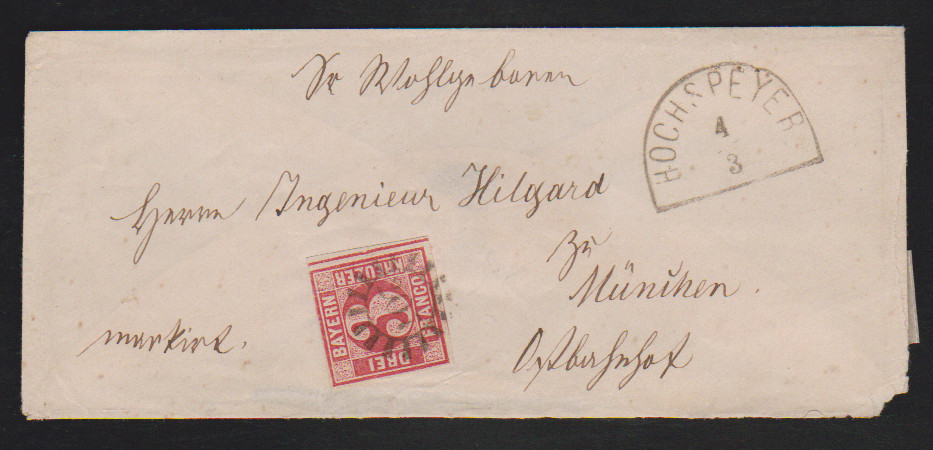 Sr Wohlgeboren
HOCHSPEYER
4
3
Herrn Ingenieur Hilgard
zu
München.
Ostbahnhof
markirt.
BAYERN
KREUZER
FRANCO
DREI
3